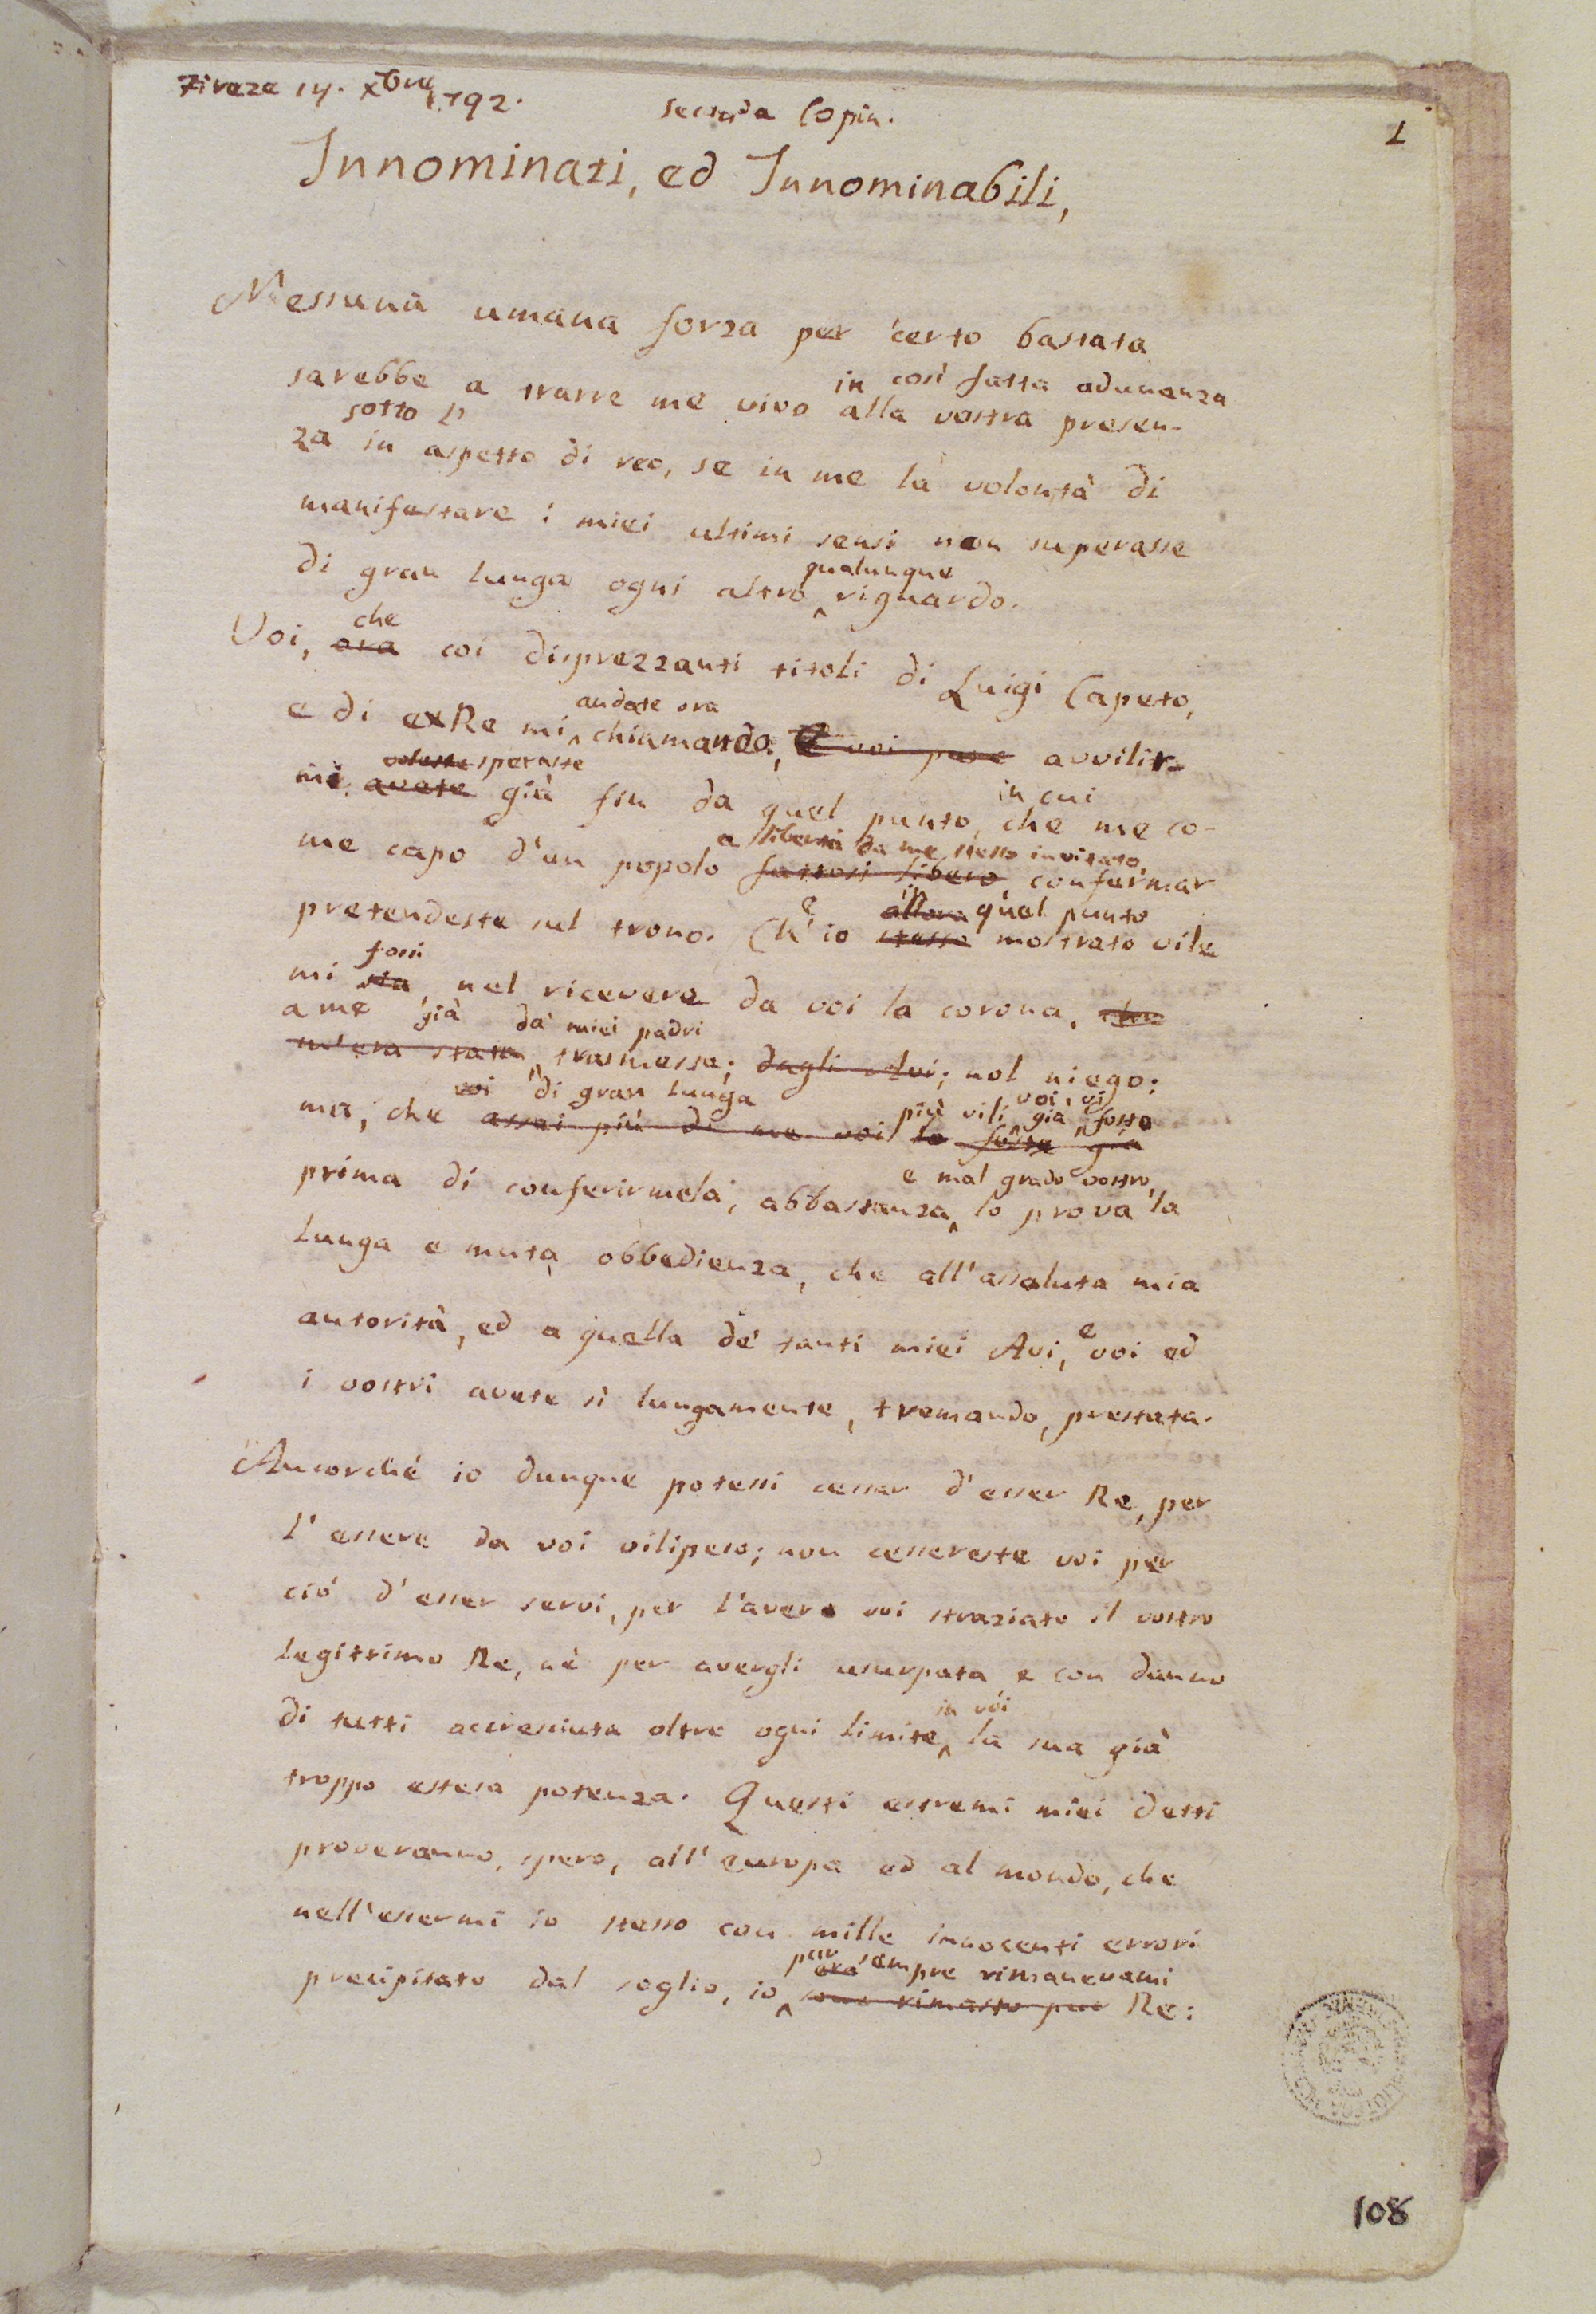 Firenze 14. Xbre 1792.
seconda Copia.
1
Innominati, ed Innominabili,
Nessuna umana forza per certo bastata
in così fatta adunanza
sarebbe a trarre me vivo alla vostra presen-
sotto l'
za in aspetto di reo, se in me la volontà di
manifestare i miei ultimi sensi non superasse
qualunque
di gran lunga ogni altro riguardo.
che
Voi, ora coi disprezzanti titoli di Luigi Capeto,
andate ora
e di exRe mi chiamando, E voi pure avvilir-
voleste speraste
mi avete già fin da quel punto, in cui che me co-
a libertà da me stesso invitato,
me capo d'un popolo fattosi libero, confermar
in allora quel punto
pretendeste sul trono. Ch'e io stesso mostrato vile
fossi
mi sia, nel ricevere da voi la corona, che
a me già da' miei padri
m'era stata trasmessa; dagli Avi; nol niego:
voi di gran lunga più vili voi, vi già foste
ma, che assai più di me voi lo foste già
e mal grado vostro,
prima di conferirmela, abbastanza lo prova la
lunga e muta obbedienza, che all'assoluta mia
autorità, ed a quella de' tanti miei Avi, e voi ed
i vostri avete sì lungamente, tremando, prestata.
Ancorché io dunque potessi cessar d'esser Re, per
l'essere da voi vilipeso; non cessereste voi per
ciò d'esser servi, per l'avere voi straziato il vostro
legittimo Re, nè per avergli usurpata e con danno
in voi
di tutti accresciuta oltre ogni limite, la sua già
troppo estesa potenza. Questi estremi miei detti
proveranno, spero, all'europa ed al mondo, che
nell'essermi io stesso con mille innocenti errori
pur ora sempre rimanevami
precipitato dal soglio, io sono rimasto pur Re:
108